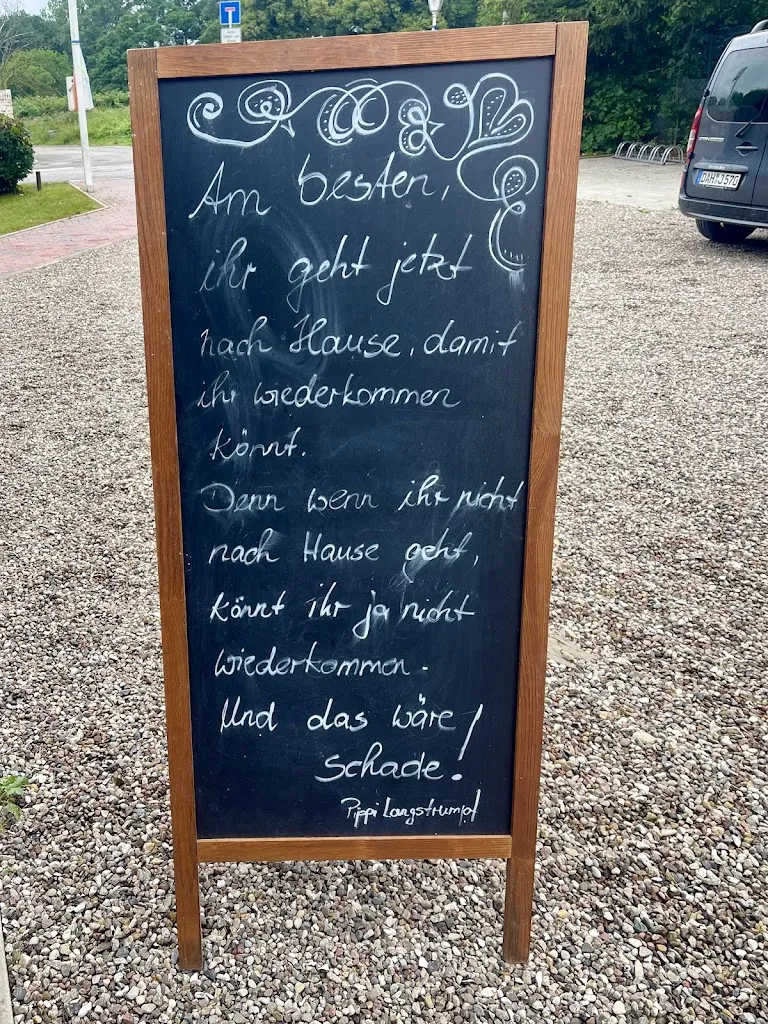 Am besten,
ihr geht jetzt
nach Hause, damit
ihr wiederkommen
könnt.
Denn wenn ihr nicht
nach Hause geht,
könnt ihr ja nicht
wiederkommen.
Und das wäre
schade!
Pippi Langstrumpf
DAH J 570